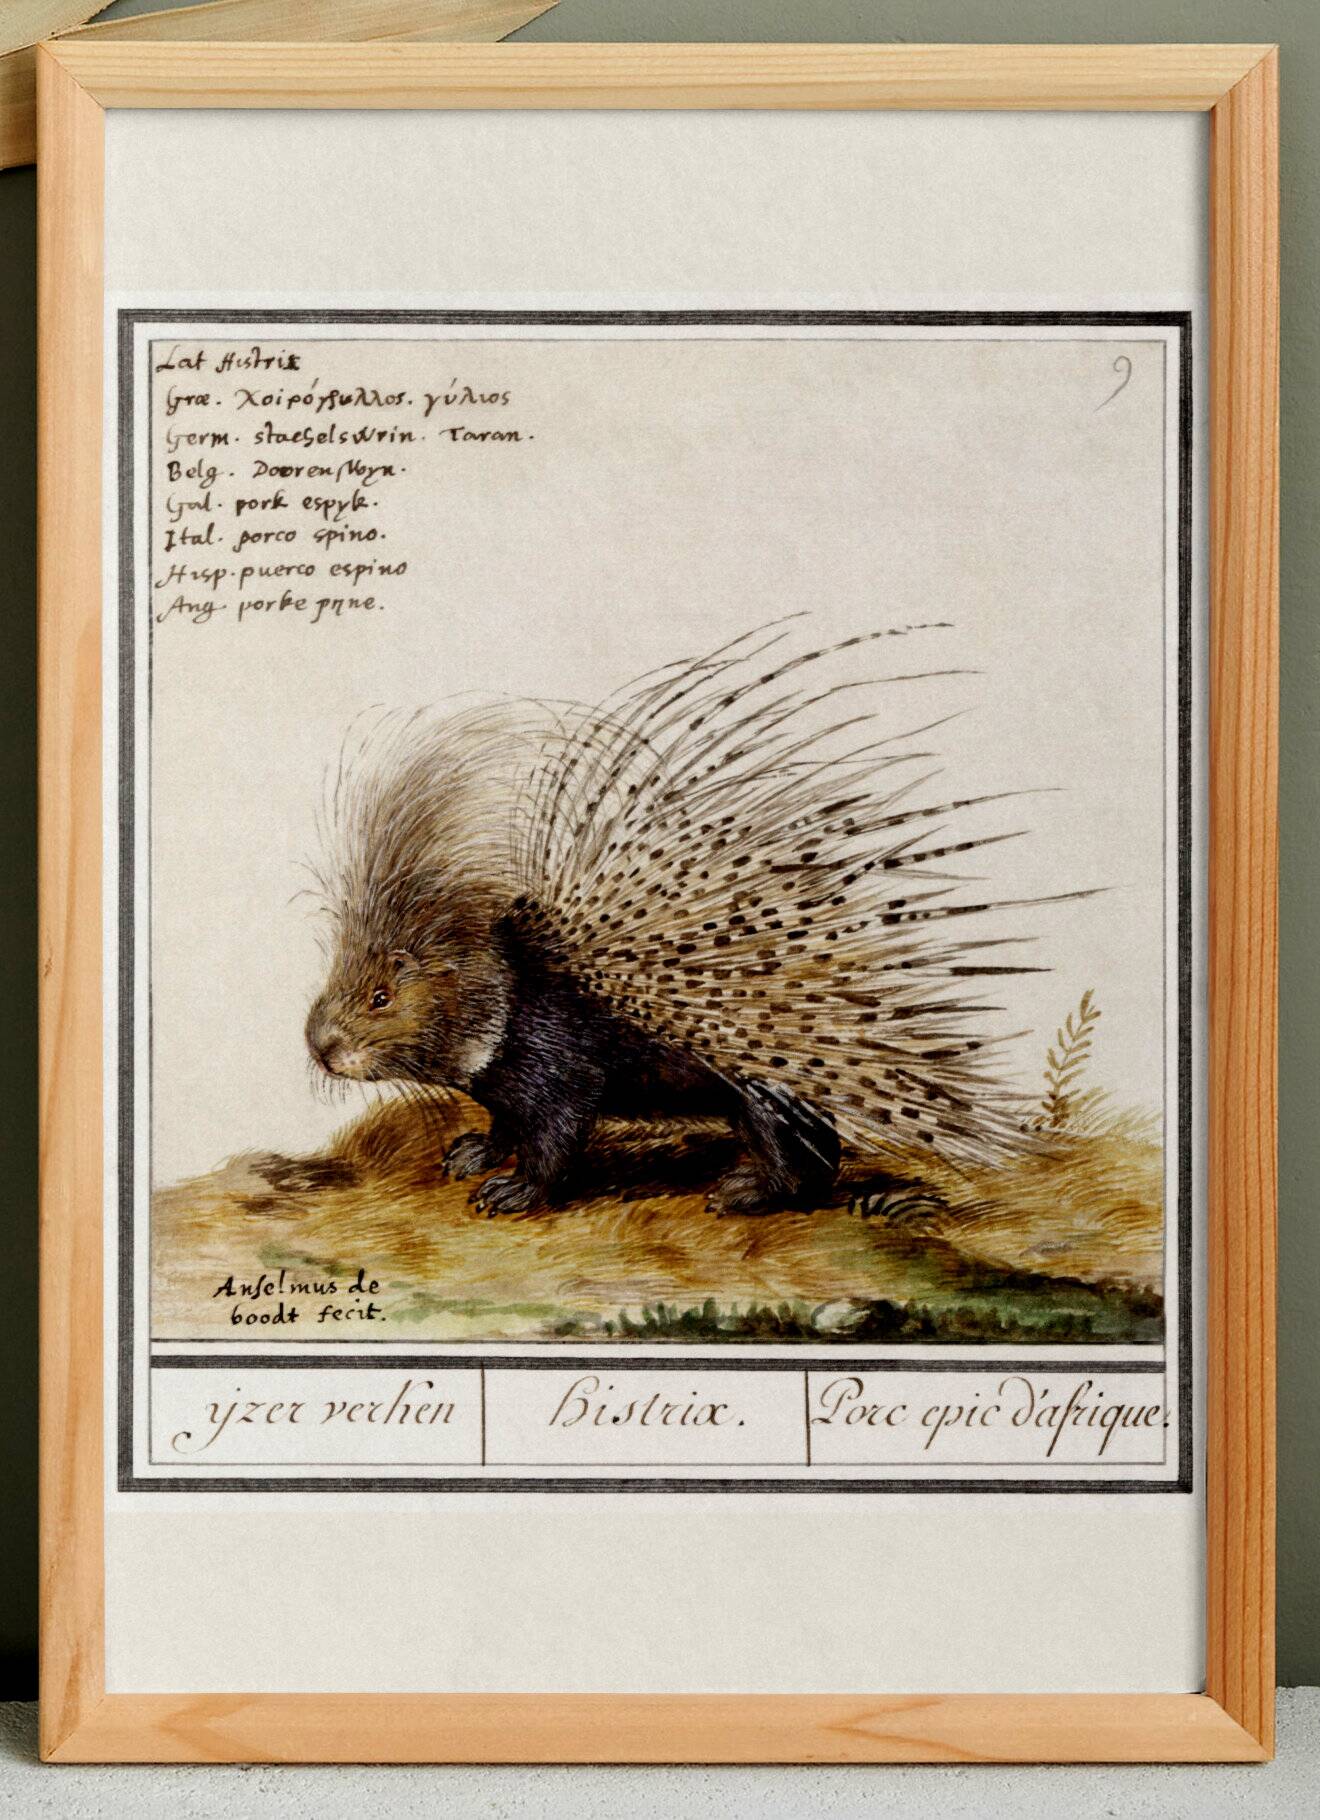 Lat Histrix
9
Græ. Χοιρόγρυλλος. γύλιος
Germ. stachelswin. Taran.
Belg. Doorenswyn.
Gal. pork espyk.
Ital. porco spino.
Hisp. puerco espino
Ang porke pyne.
Anselmus de
boodt fecit.
yzer verken
Histrix.
Porc epic d'afrique.